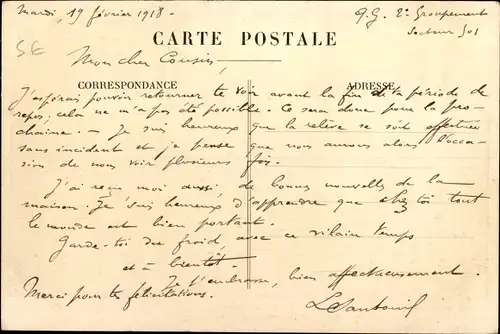 Mardi, 19 février 1918.
Q.G. 2e Groupement
Secteur 501
CARTE POSTALE
Mon cher Cousin,
CORRESPONDANCE
ADRESSE
J'espérais pouvoir retourner te voir avant la fin de la période de
repos; cela ne m'a pas été possible. Ce sera donc pour la pro-
chaine. — Je suis heureux que la relève se soit effectuée
sans incident et je pense que nous aurons alors l'occa-
sion de nous voir plusieurs fois.
J'ai reçu moi aussi, de bonnes nouvelles de la
maison. Je suis heureux d'apprendre que chez toi tout
le monde est bien portant.
Garde-toi du froid, avec ce vilain temps
et à bientôt.
Je t'embrasse, bien affectueusement.
Merci pour tes félicitations.